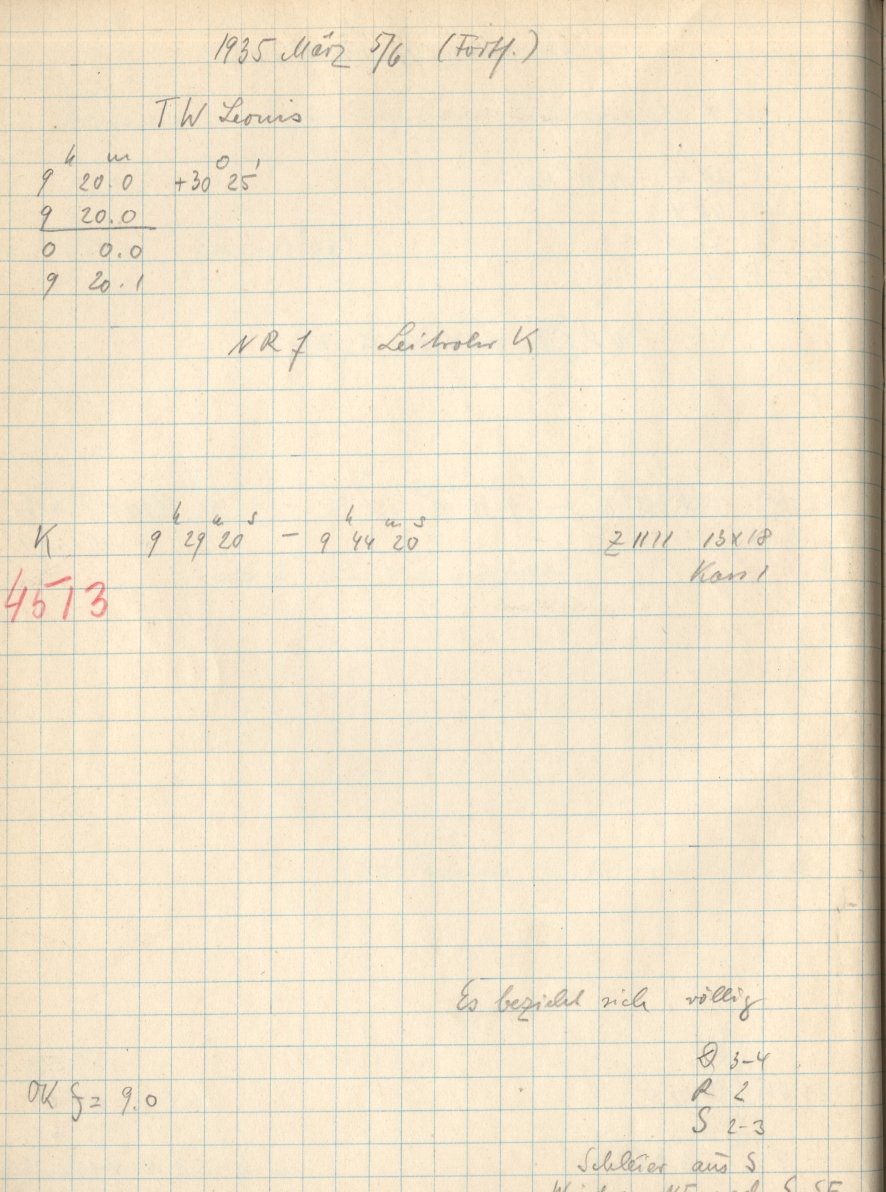 1935 März 5/6 (Forts.)
TW Leonis
9ʰ 20ᵐ.0 +30° 25'
9 20.0
0 0.0
9 20.1
NR 7 Leitrohr K
K 9ʰ 29ᵐ 20ˢ – 9ʰ 44ᵐ 20ˢ Z 1111 13x18
Kass 1
4513
Es bezieht sich völlig
Q 3-4
OK = 9.0
R 2
S 2-3
Schleier aus S